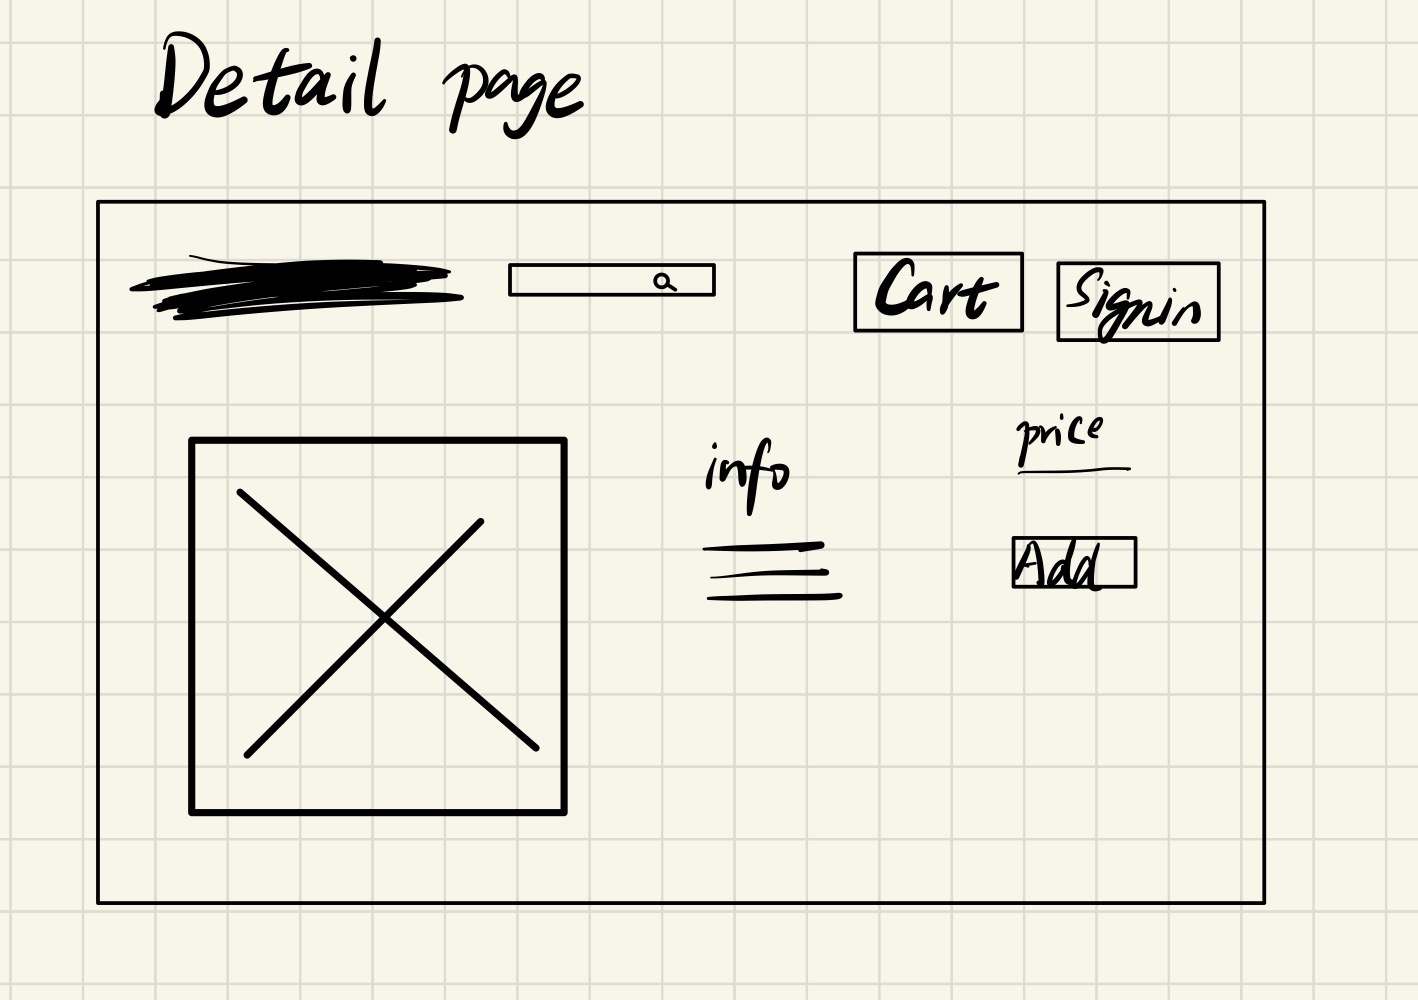 Detail page
Cart
Signin
info
price
Add